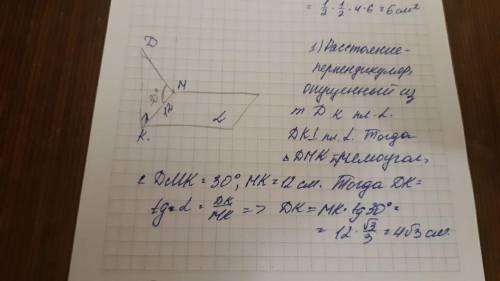 = 1/2 · 1/2 · 4 · 6 = 6 см²
D
M
30°
12
K
L
1) Расстояние-
перпендикуляр,
опущенный из
т D к пл. L.
DK⊥ пл. L. Тогда
△DMK прямоугол,
с DMK = 30°, MK = 12 см. Тогда DK =
tg L = DK/MK => DK = MK · tg 30° =
= 12 · √3/3 = 4√3 см.